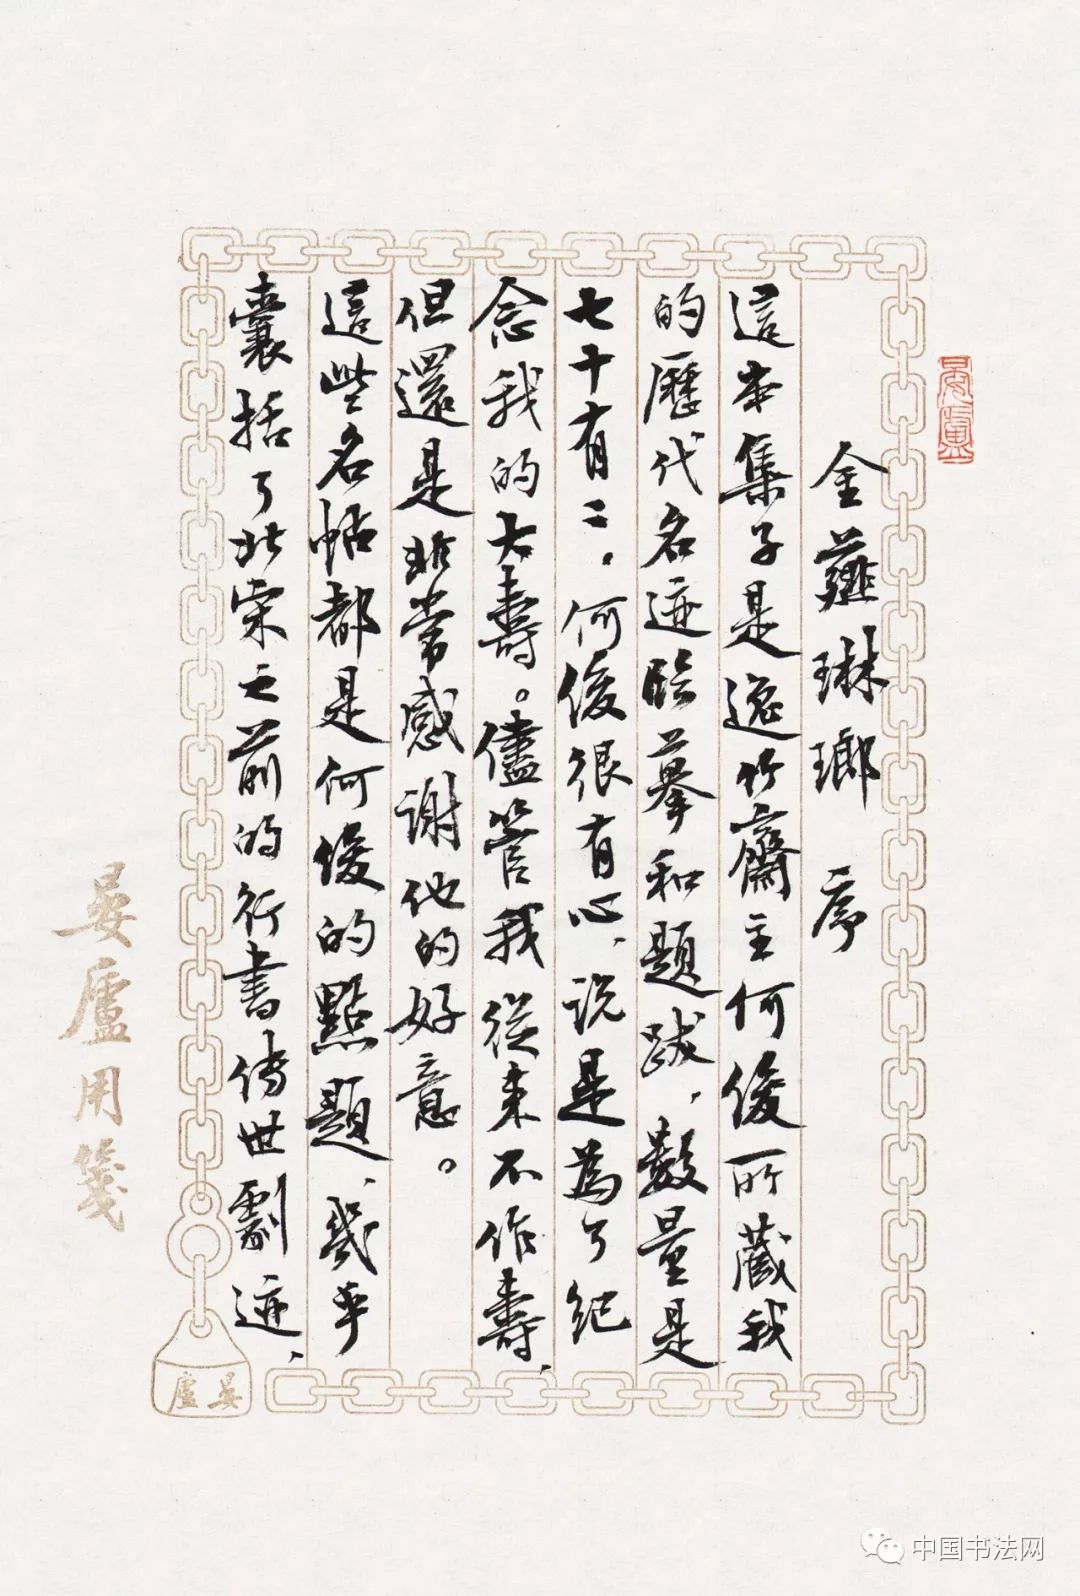 金薤琳瑯 序
這本集子是逸竹齋主何俊所藏我
的歷代名迹臨摹和題跋，數量是
七十有二，何俊很有心，説是為了紀
念我的大壽。儘管我從来不作壽，
但還是非常感謝他的好意。
這些名帖都是何俊的點題，幾乎
囊括了北宋之前的行書傳世劇迹，
晏廬
晏廬用箋
晏廬
中国书法网